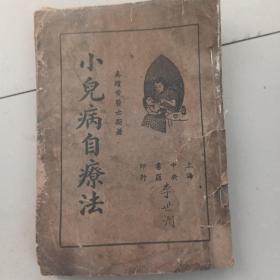 小兒病自療法
上海
中央
書店
印行
李世潤